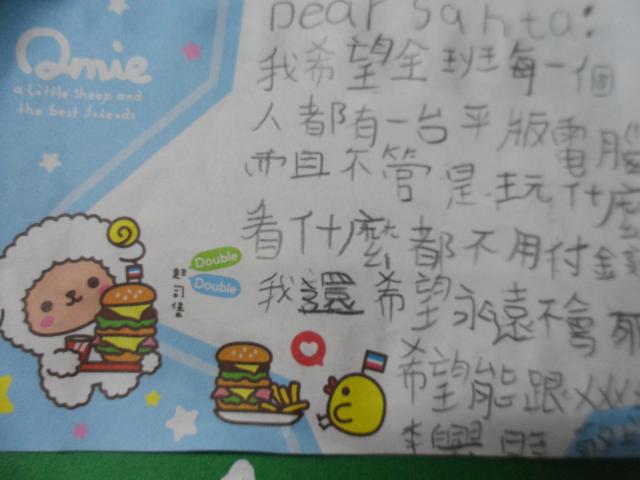 Dear Santa:
我希望全班每一個
人都有一台平版電腦
而且不管是玩什麼
看什麼都不用付錢
我還希望永遠不會死
希望能跟
Omie
a little sheep and
the best friends
Double
Double
起司堡